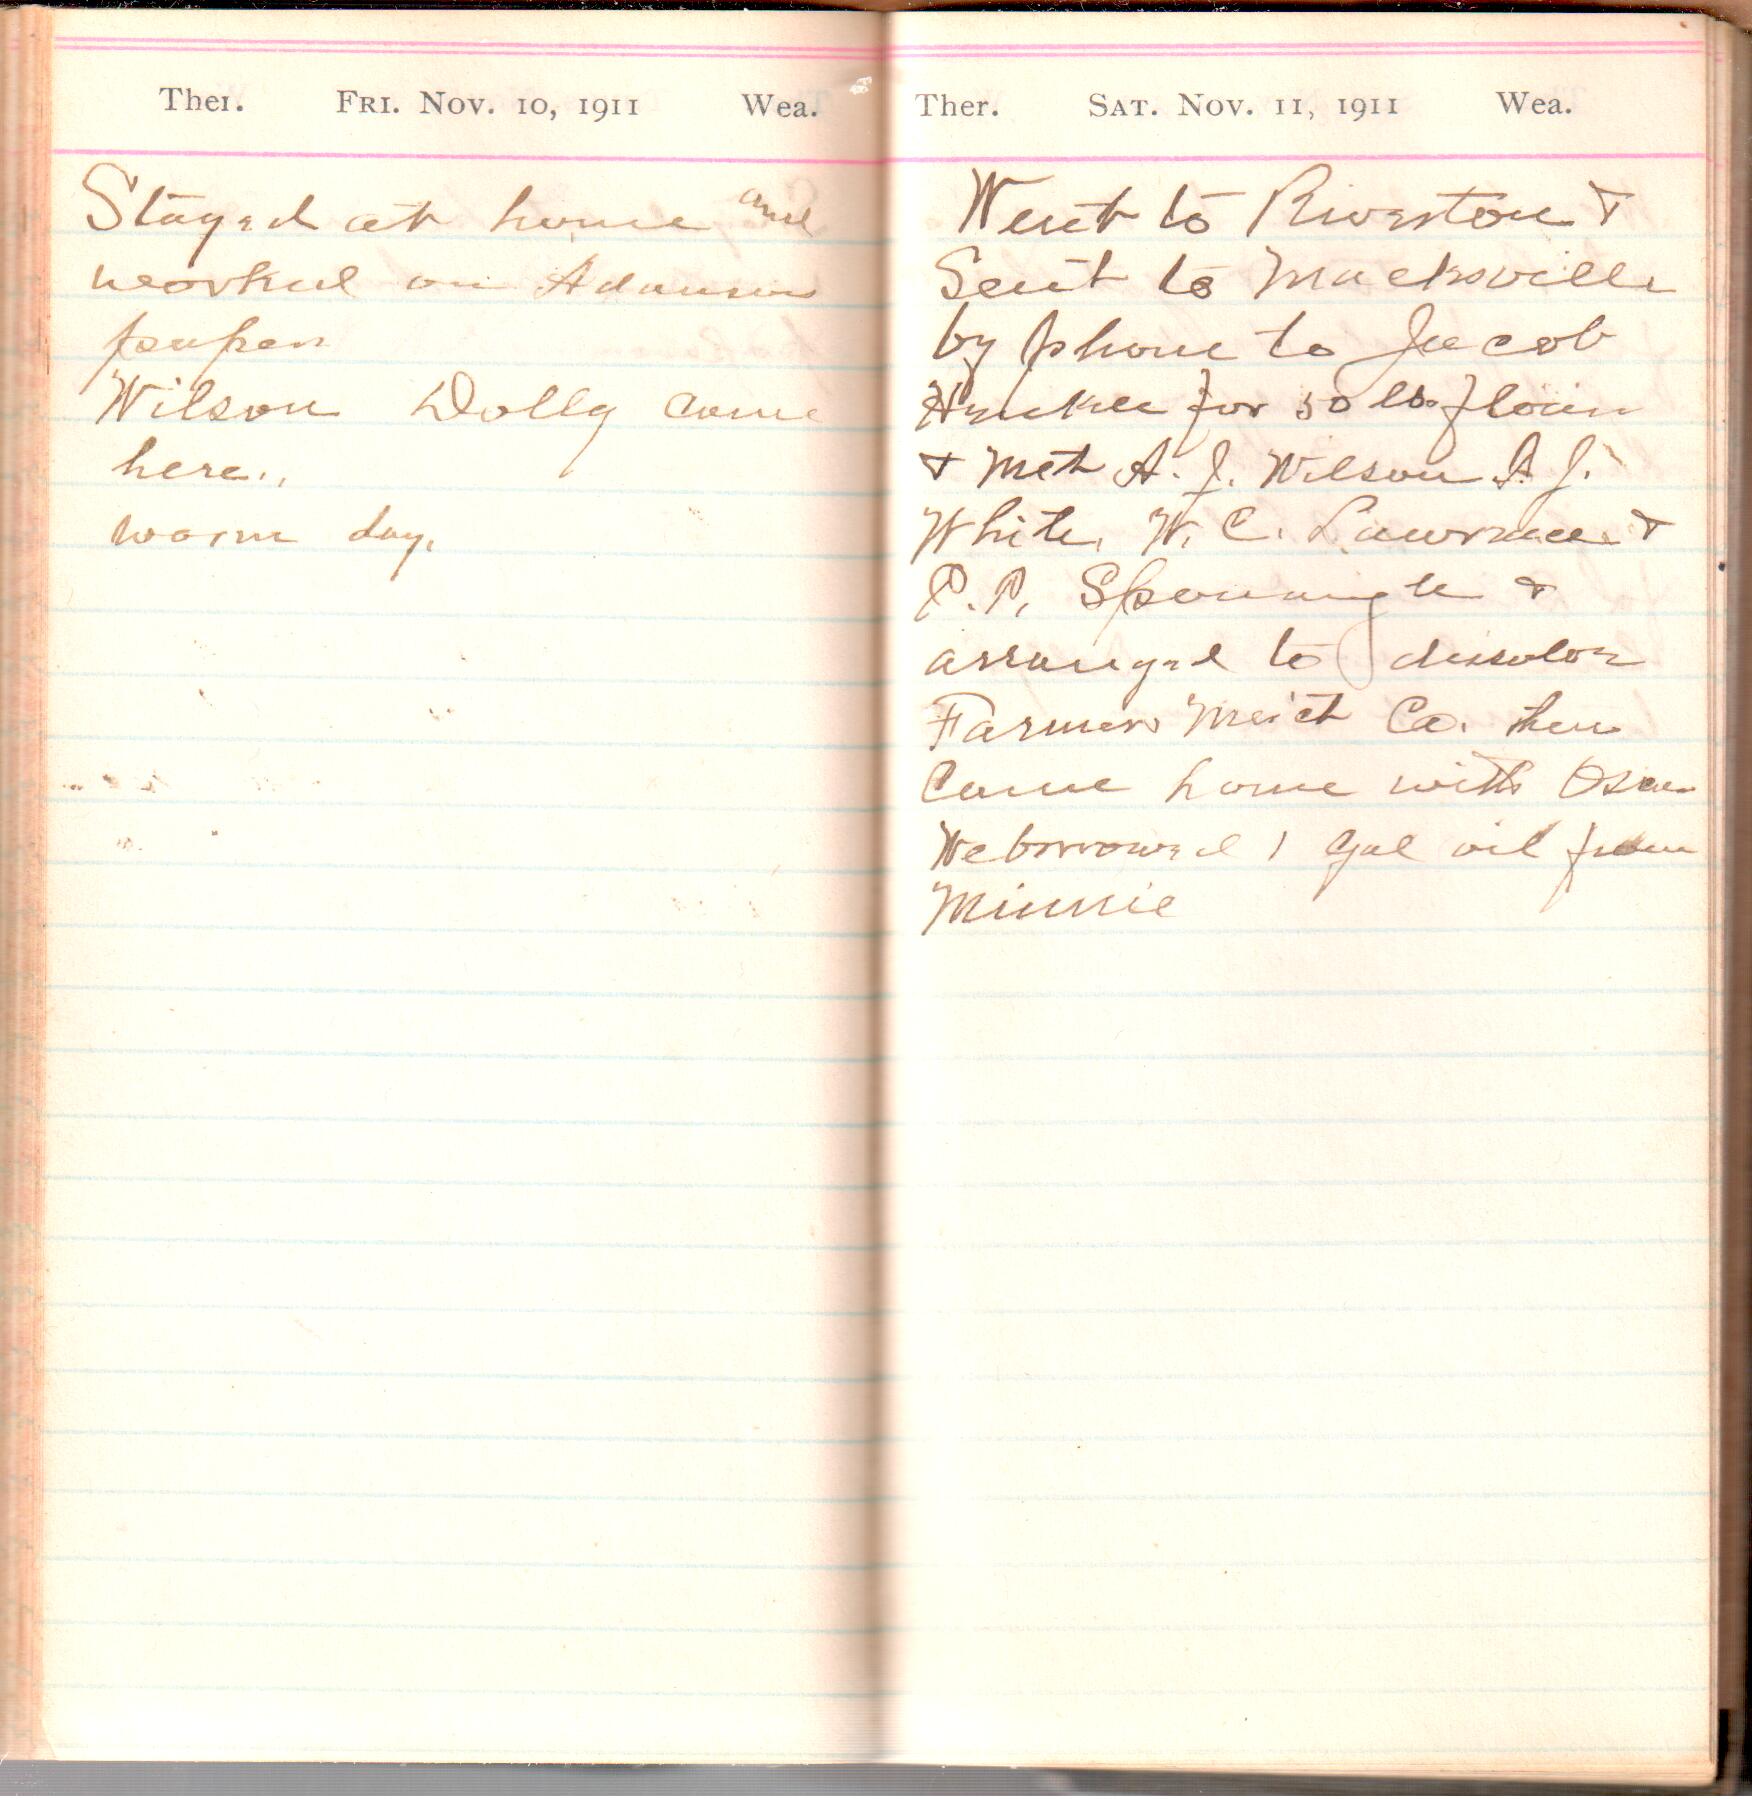 Ther. Fri. Nov. 10, 1911 Wea.
Stayed at home and
worked on Adamson
papers
Wilson Dolly came
here.
warm day.
Ther. Sat. Nov. 11, 1911 Wea.
Went to Riverton &
Sent to Macksville
by phone to Jacob
for 50 lbs flour
& Met A. J. Wilson A. J.
White, W. C. Lawrence &
P. P. Sponaugle &
arranged to
Farmers Merch Co. then
Came home with
We borrowed 1 gal oil from
Minnie